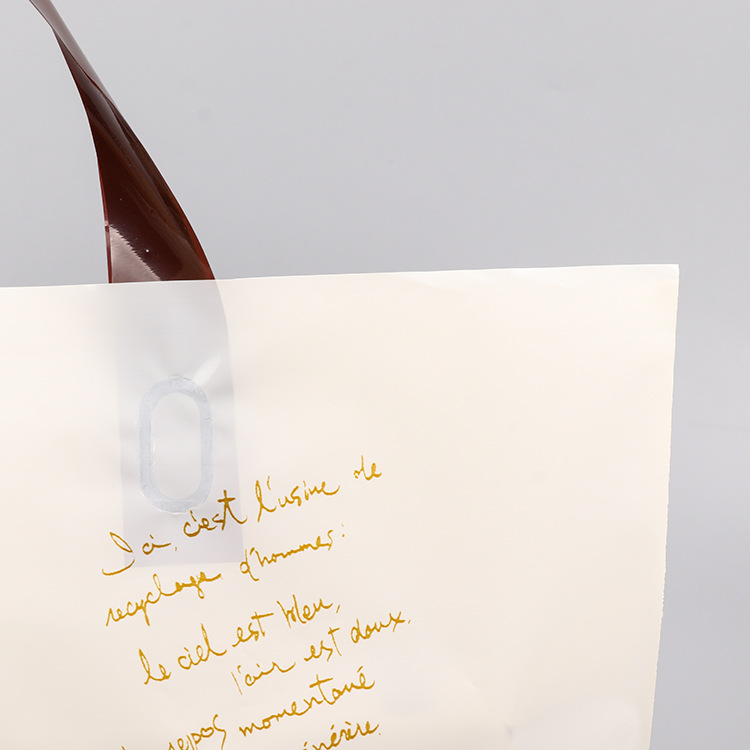 Ici, c'est l'usine de
recyclage d'hommes:
le ciel est bleu,
l'air est doux.
repos momentané